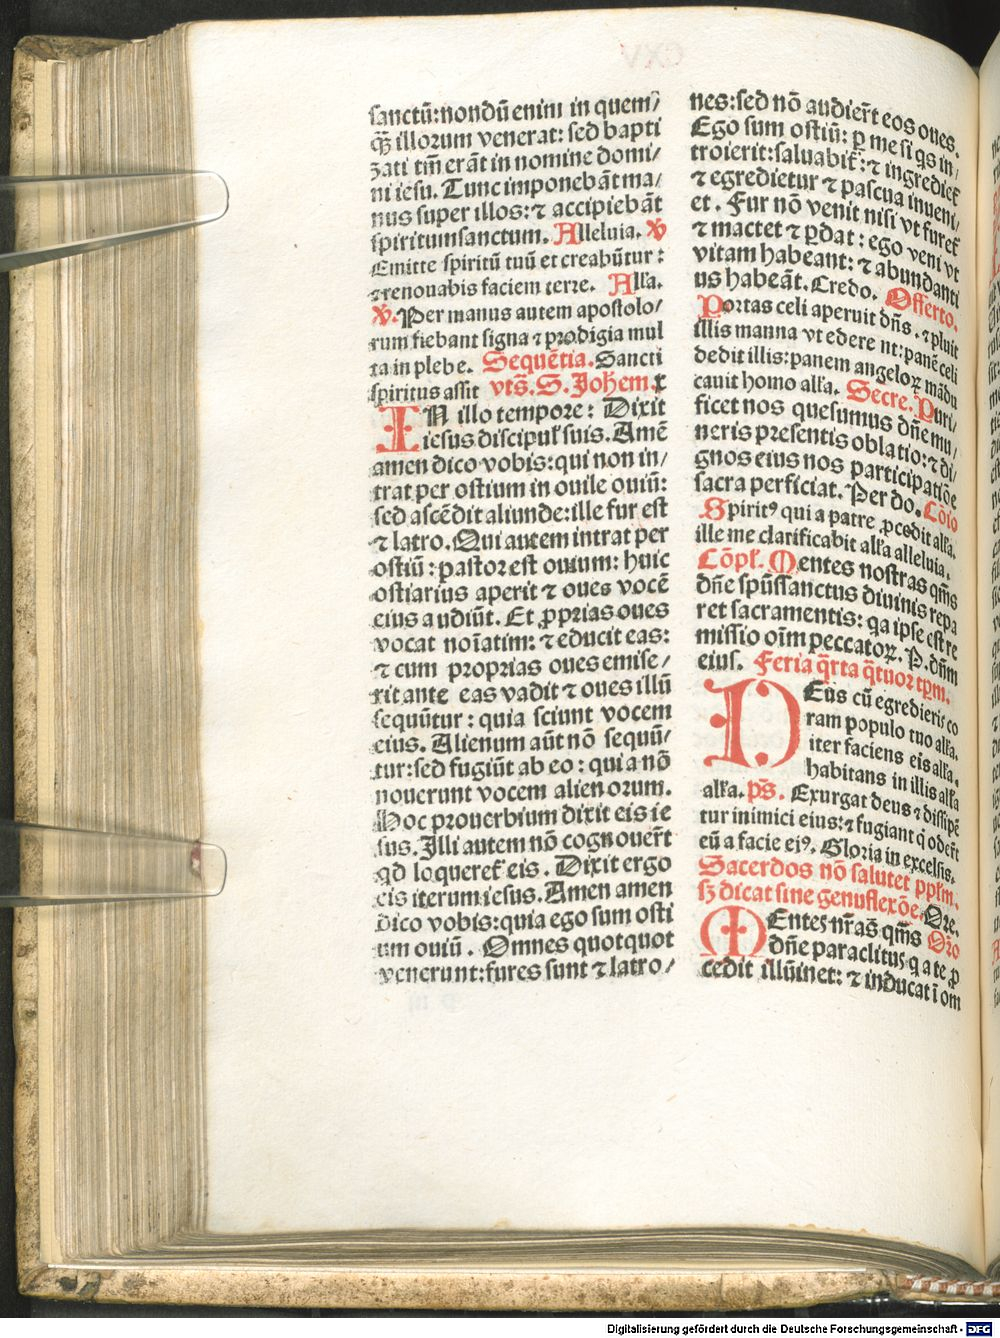 sanctū: nondū enim in quem/
q̄ illorum venerat: sed bapti
zati tm̄ erāt in nomine domi/
ni iesu. Tunc imponebāt ma/
nus super illos: ⁊ accipiebāt
spiritumsanctum. Alleluia. ℣
Emitte spiritū tuū et creabūtur:
⁊ renouabis faciem terre. Allʼa.
℣. Per manus autem apostolo/
rum fiebant signa ⁊ prodigia mul
ta in plebe. Sequētia. Sancti
spiritus assit vts̄. S. Johem. x
IN illo tempore: Dixit
iesus discipulʼ suis. Amē
amen dico vobis: qui non in/
trat per ostium in ouile ouiū:
sed ascēdit aliunde: ille fur est
⁊ latro. Qui autem intrat per
ostiū: pastor est ouium: huic
ostiarius aperit ⁊ oues vocē
eius audiūt. Et ꝓprias oues
vocat noīatim: ⁊ educit eas:
⁊ cum proprias oues emise/
rit ante eas vadit ⁊ oues illū
sequūtur: quia sciunt vocem
eius. Alienum aūt nō sequū/
tur: sed fugiūt ab eo: quia nō
nouerunt vocem alienorum.
Hoc prouerbium dixit eis ie
sus. Illi autem nō cognouer̄t
qd loqueret̄ eis. Dixit ergo
eis iterum iesus. Amen amen
dico vobis: quia ego sum osti
um ouiū. Omnes quotquot
venerunt: fures sunt ⁊ latro/
nes: sed nō audier̄t eos oues.
Ego sum ostiū: ꝑ me si qs in/
troierit: saluabit̄: ⁊ ingrediet̄
⁊ egredietur ⁊ pascua inueni/
et. Fur nō venit nisi vt furet̄
⁊ mactet ⁊ ꝑdat: ego veni vt
vitam habeant: ⁊ abundanti
us habeāt. Credo. Offerto.
Portas celi aperuit dn̄s. ⁊ pluit
illis manna vt ederent: panē celi
dedit illis: panem angeloꝝ mādu
cauit homo allʼa. Secre. Puri/
ficet nos quesumus dn̄e mu/
neris presentis oblatio: ⁊ di/
gnos eius nos participatiōe
sacra perficiat. Per do. Cōio
Spiritꝰ qui a patre ꝓcedit allʼa.
ille me clarificabit allʼa alleluia.
Cōplʼ. Mentes nostras qm̄s
dn̄e spūssanctus diuinis repa
ret sacramentis: qa ipse est re
missio oīm peccatoꝝ. P. dn̄m
eius. Feria q̄rta q̄tuor tpm.
DEus cū egredieris co
ram populo tuo allʼa.
iter faciens eis allʼa.
habitans in illis allʼa
allʼa. ps̄. Exurgat deus ⁊ dissipē
tur inimici eius: ⁊ fugiant q̇ oder̄t
eū a facie eiꝰ. Gloria in excelsis.
Sacerdos nō salutet pplm.
sꝫ dicat sine genuflexōe. Ore.
MEntes nr̄as qm̄s Oro
dn̄e paraclitus q a te ꝓ
cedit illūinet: ⁊ inducat ī om
Digitalisierung gefördert durch die Deutsche Forschungsgemeinschaft - DFG